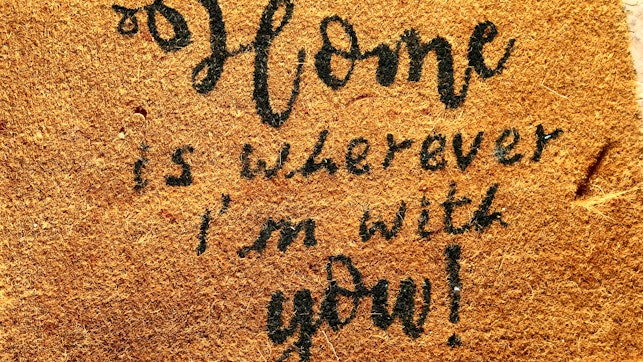 Home
is wherever
i'm with
you!